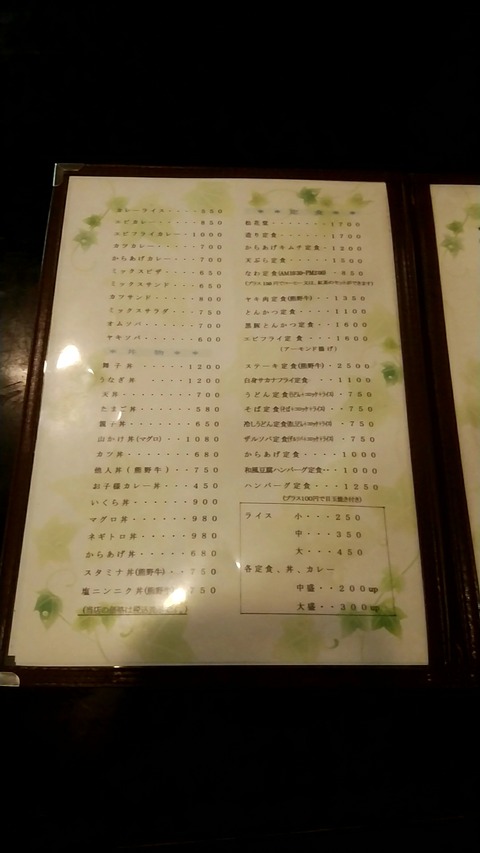 カレーライス・・・・・５５０
エビカレー・・・・・・８５０
エビフライカレー・・・１０００
カツカレー・・・・・・７００
からあげカレー・・・・７００
ミックスピザ・・・・・６５０
ミックスサンド・・・・６５０
カツサンド・・・・・・８００
ミックスサラダ・・・・７５０
オムソバ・・・・・・・７００
ヤキソバ・・・・・・・６００
＊ 丼 物 ＊ ＊
舞子丼・・・・・・１２００
うなぎ丼・・・・・１２００
天丼・・・・・・・・７００
たまご丼・・・・・・５８０
親子丼・・・・・・・６５０
山かけ丼(マグロ)・・１０８０
カツ丼・・・・・・・６８０
他人丼(熊野牛)・・・７５０
お子様カレー丼・・・４５０
いくら丼・・・・・・９００
マグロ丼・・・・・・９８０
ネギトロ丼・・・・・９８０
からあげ丼・・・・・６８０
スタミナ丼(熊野牛)・・７５０
塩ニンニク丼(熊野牛)・７５０
＊ ＊ 定 食 ＊ ＊
松花堂・・・・・・・１７００
造り定食・・・・・・１７００
からあげキムチ定食・１２００
天ぷら定食・・・・・１５００
なわ定食・８５０
ヤキ肉定食(熊野牛)・・１３５０
とんかつ定食・・・・１１００
黒豚とんかつ定食・・１６００
エビフライ定食・・・１６００
(アーモンド揚げ)
ステーキ定食(熊野牛)・・２５００
白身サカナフライ定食・・１１００
うどん定食・７５０
そば定食・７５０
冷しうどん定食・７５０
ザルソバ定食・７５０
からあげ定食・・・・１０００
和風豆腐ハンバーグ定食・・１０００
ハンバーグ定食・・・１２５０
(プラス100円で目玉焼き付き)
ライス 小・・・２５０
中・・・３５０
大・・・４５０
各定食、丼、カレー
中盛・・２００up
大盛・・３００up